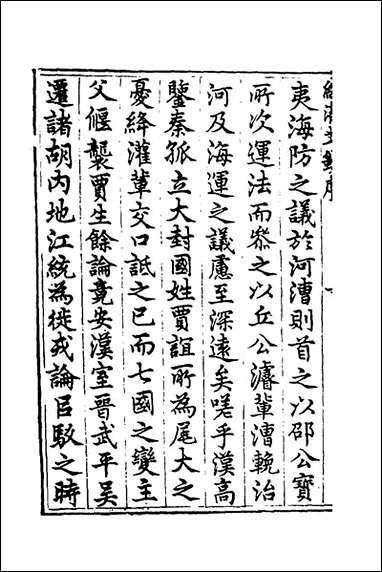 夷海防之議於河漕則首之以邵公寳
所次運法而叅之以丘公濬軰漕輓治
河及海運之議慮至深遠矣嗟乎漢高
鑒秦孤立大封國姓賈誼所為尾大之
憂絳灌軰交口詆之已而七國之變主
父偃襲賈生餘論竟安漢室晉武平吳
遷諸胡内地江統為徙戎論吕馭之時